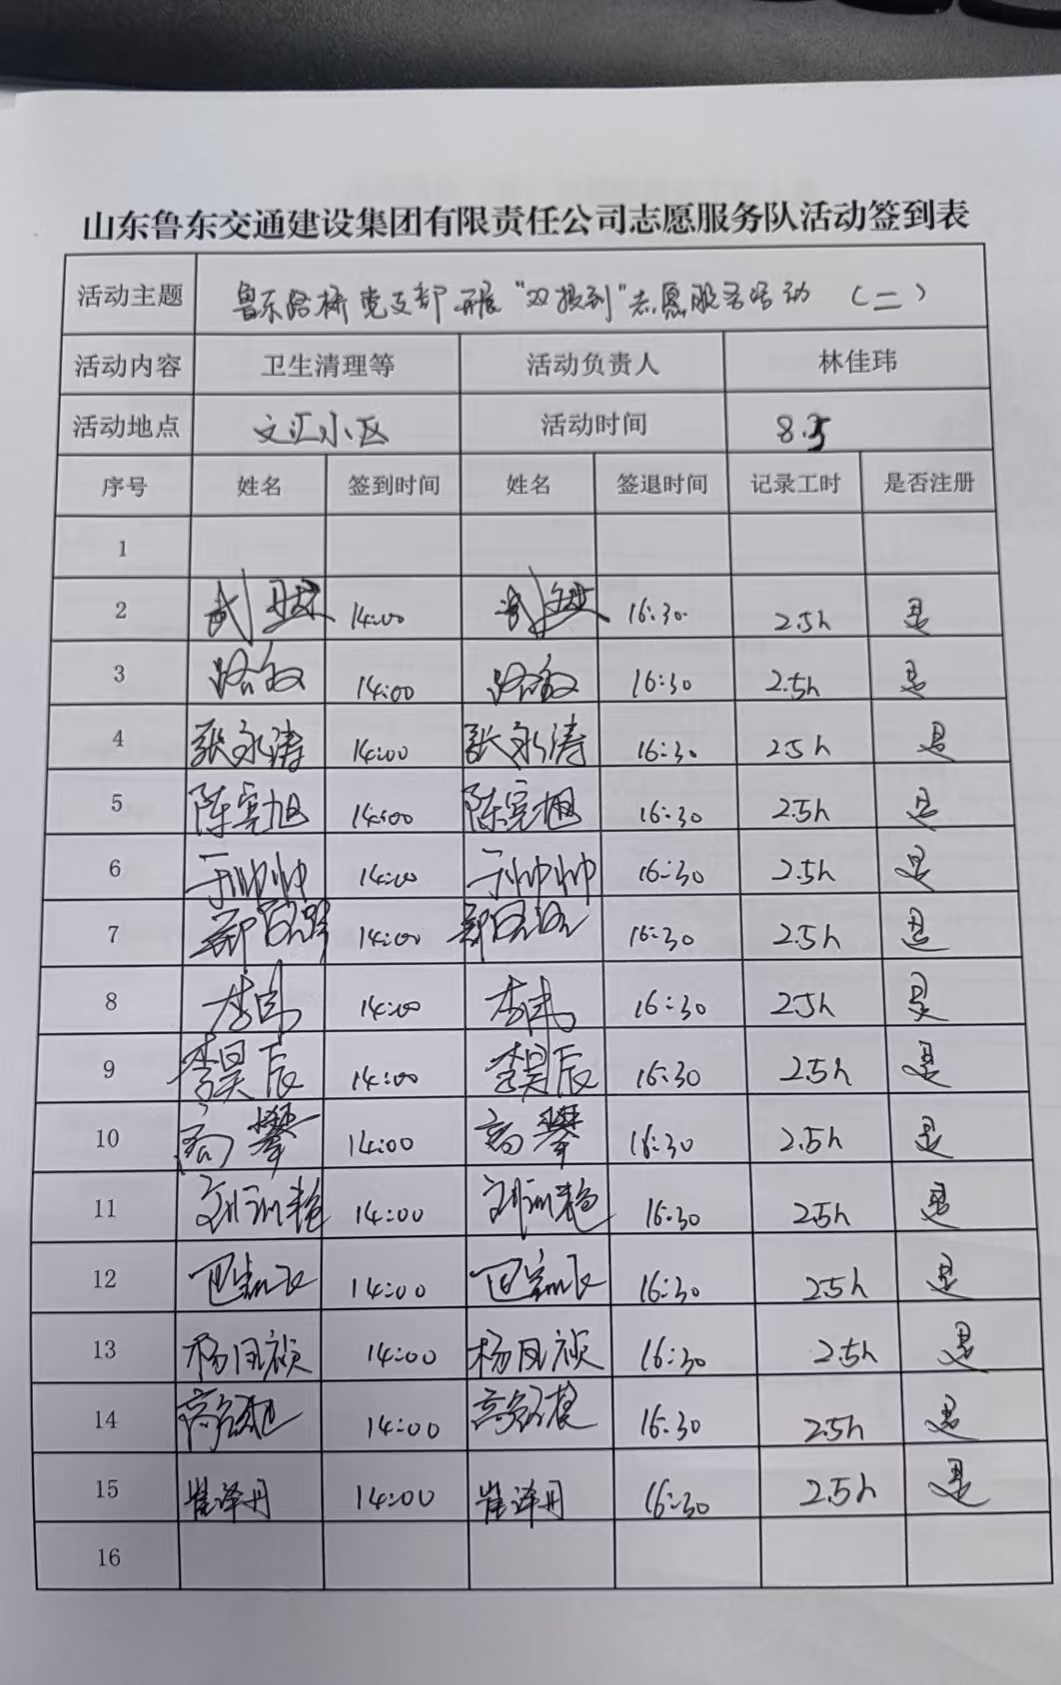 山东鲁东交通建设集团有限责任公司志愿服务队活动签到表
活动主题 鲁东路桥党支部开展“双报到”志愿服务活动（二）
活动内容 卫生清理等 活动负责人 林佳玮
活动地点 文汇小区 活动时间 8.5
序号 姓名 签到时间 姓名 签退时间 记录工时 是否注册
1
2 武 14:00 武 16:30 2.5h 是
3 路敏 14:00 路敏 16:30 2.5h 是
4 张永涛 14:00 张永涛 16:30 2.5h 是
5 陈宪旭 14:00 陈宪旭 16:30 2.5h 是
6 于帅帅 14:00 于帅帅 16:30 2.5h 是
7 14:00 16:30 2.5h 是
8 李伟 14:00 李伟 16:30 2.5h 是
9 李昊辰 14:00 李昊辰 16:30 2.5h 是
10 高攀 14:00 高攀 16:30 2.5h 是
11 刘训艳 14:00 刘训艳 16:30 2.5h 是
12 14:00 16:30 2.5h 是
13 杨凤祯 14:00 杨凤祯 16:30 2.5h 是
14 高 14:00 高 16:30 2.5h 是
15 崔译丹 14:00 崔译丹 16:30 2.5h 是
16